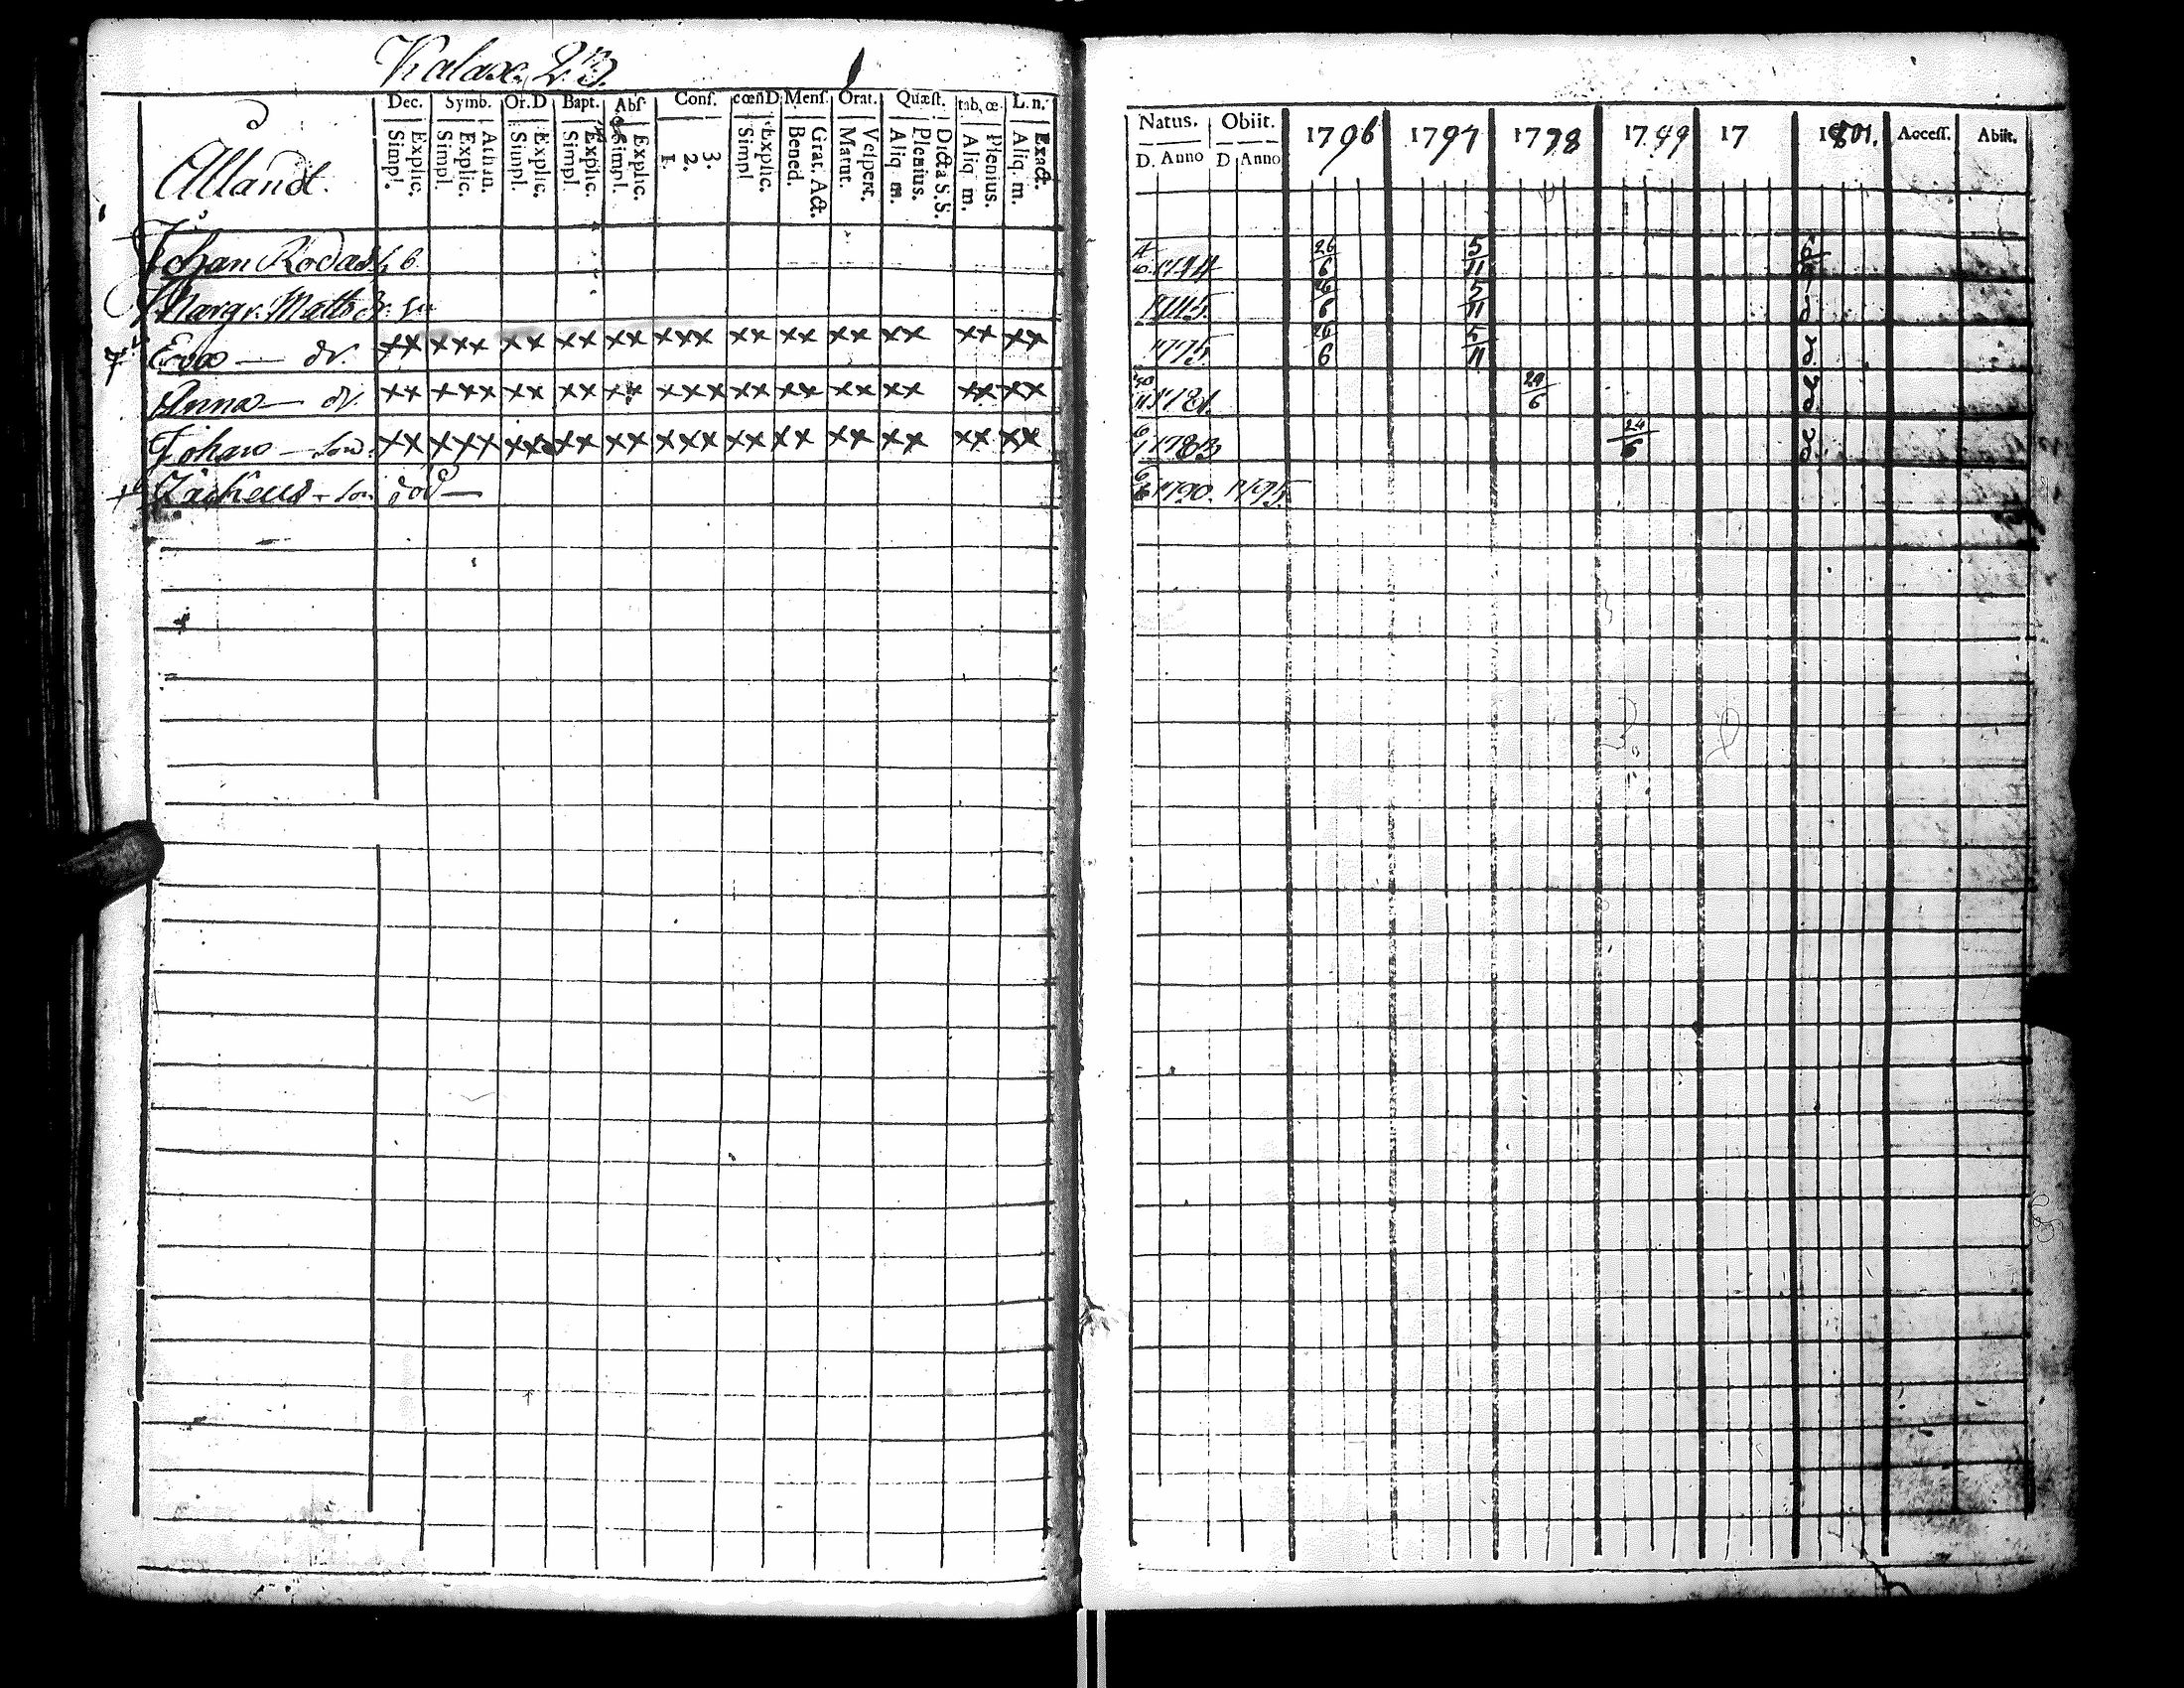 Kalax. 23.
Dec. Symb. Or.D Bapt. Abs Conf. cœnD Mens. Orat. Quæst. tab. œ. L. n.
Simpl. Explic. Simpl. Explic. Athan. Simpl. Explic. Simpl. Explic. Simpl. Explic. 1. 2. 3. Simpl Explic. Bened. Grat. Act. Matut. Vespert. Aliq m. Plenius. Dicta S. S. Aliq m. Plenius. Aliq m. Exact.
Allandt.
Natus. Obiit. 1796 1797 1798 1799 17 1801. Access. Abiit.
D. Anno D Anno
Johan 26/6 5/11
Margr. Matts dr. 1745. 26/6 5/11 d
Eva — dr. xx xxx xx xx xx xxx xx xx xx xx xx xx 1775. 26/6 5/11 d
Anna — dr. xx xxx xx xx xx xxx xx xx xx xx xx xx 1781. 24/6 d
Johan — son. xx xxx xx xx xx xxx xx xx xx xx xx xx 6/1 1783 24/6 d
Zacheus — son död — 1790. 1795